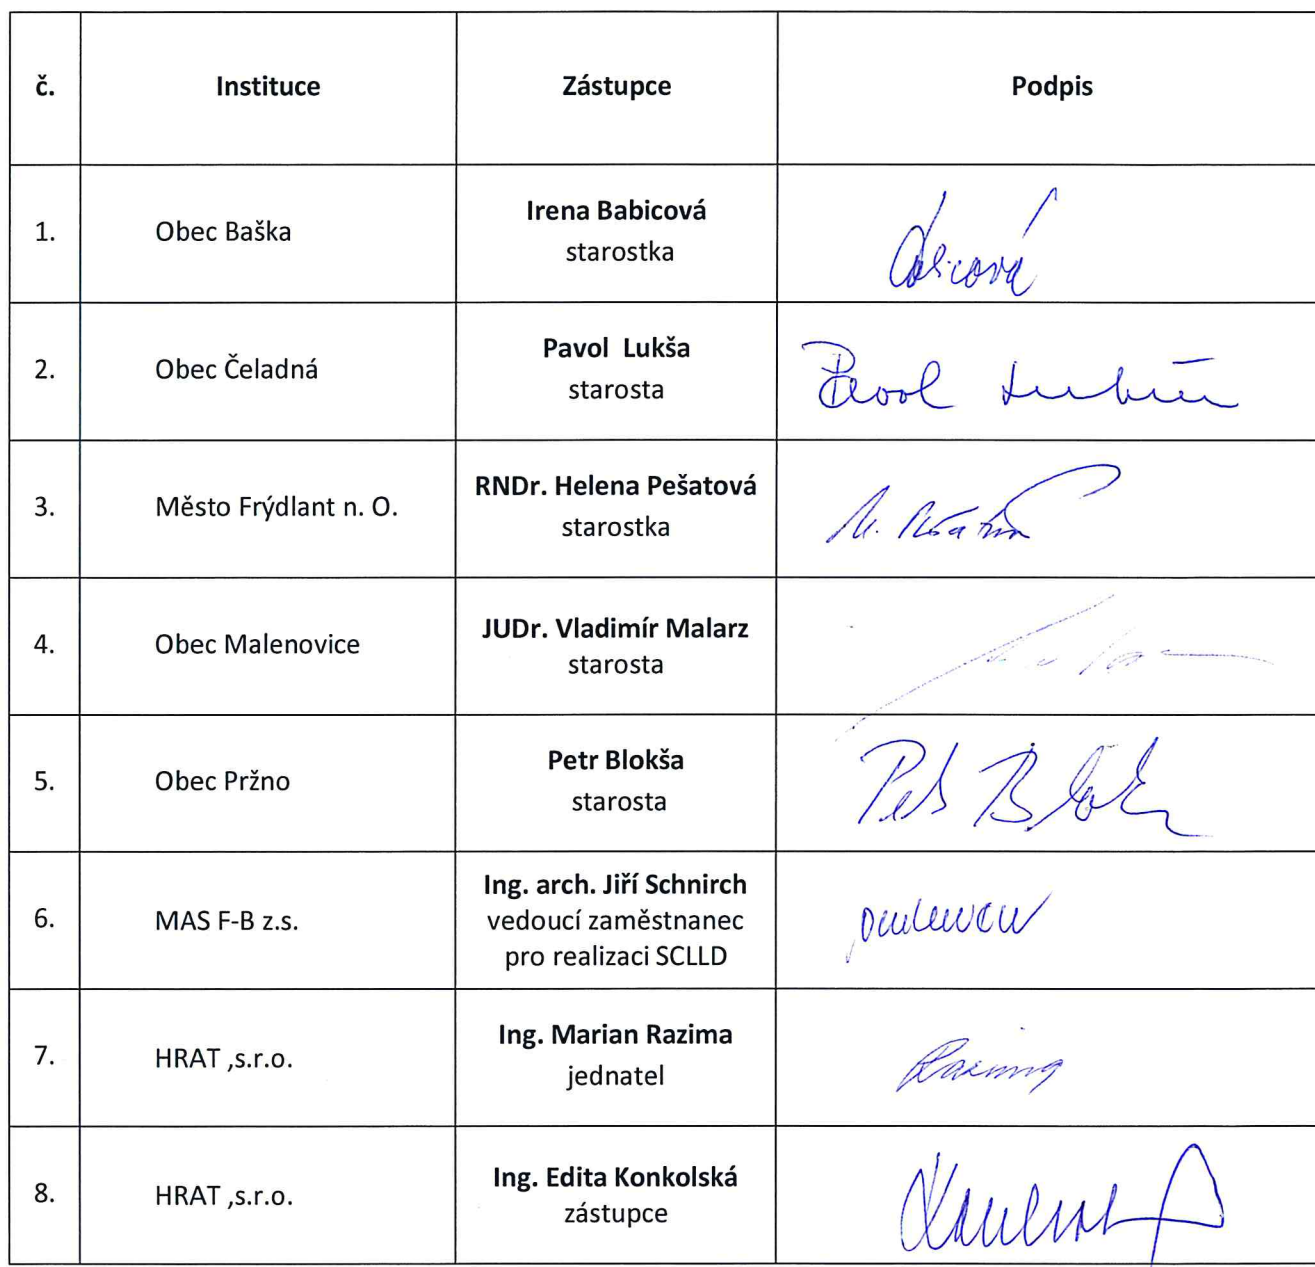 č. Instituce Zástupce Podpis
1. Obec Baška Irena Babicová
starostka
2. Obec Čeladná Pavol Lukša
starosta
Pavol
3. Město Frýdlant n. O. RNDr. Helena Pešatová
starostka
4. Obec Malenovice JUDr. Vladimír Malarz
starosta
5. Obec Pržno Petr Blokša
starosta
Petr
6. MAS F-B z.s. Ing. arch. Jiří Schnirch
vedoucí zaměstnanec
pro realizaci SCLLD
7. HRAT ,s.r.o. Ing. Marian Razima
jednatel
Razima
8. HRAT ,s.r.o. Ing. Edita Konkolská
zástupce